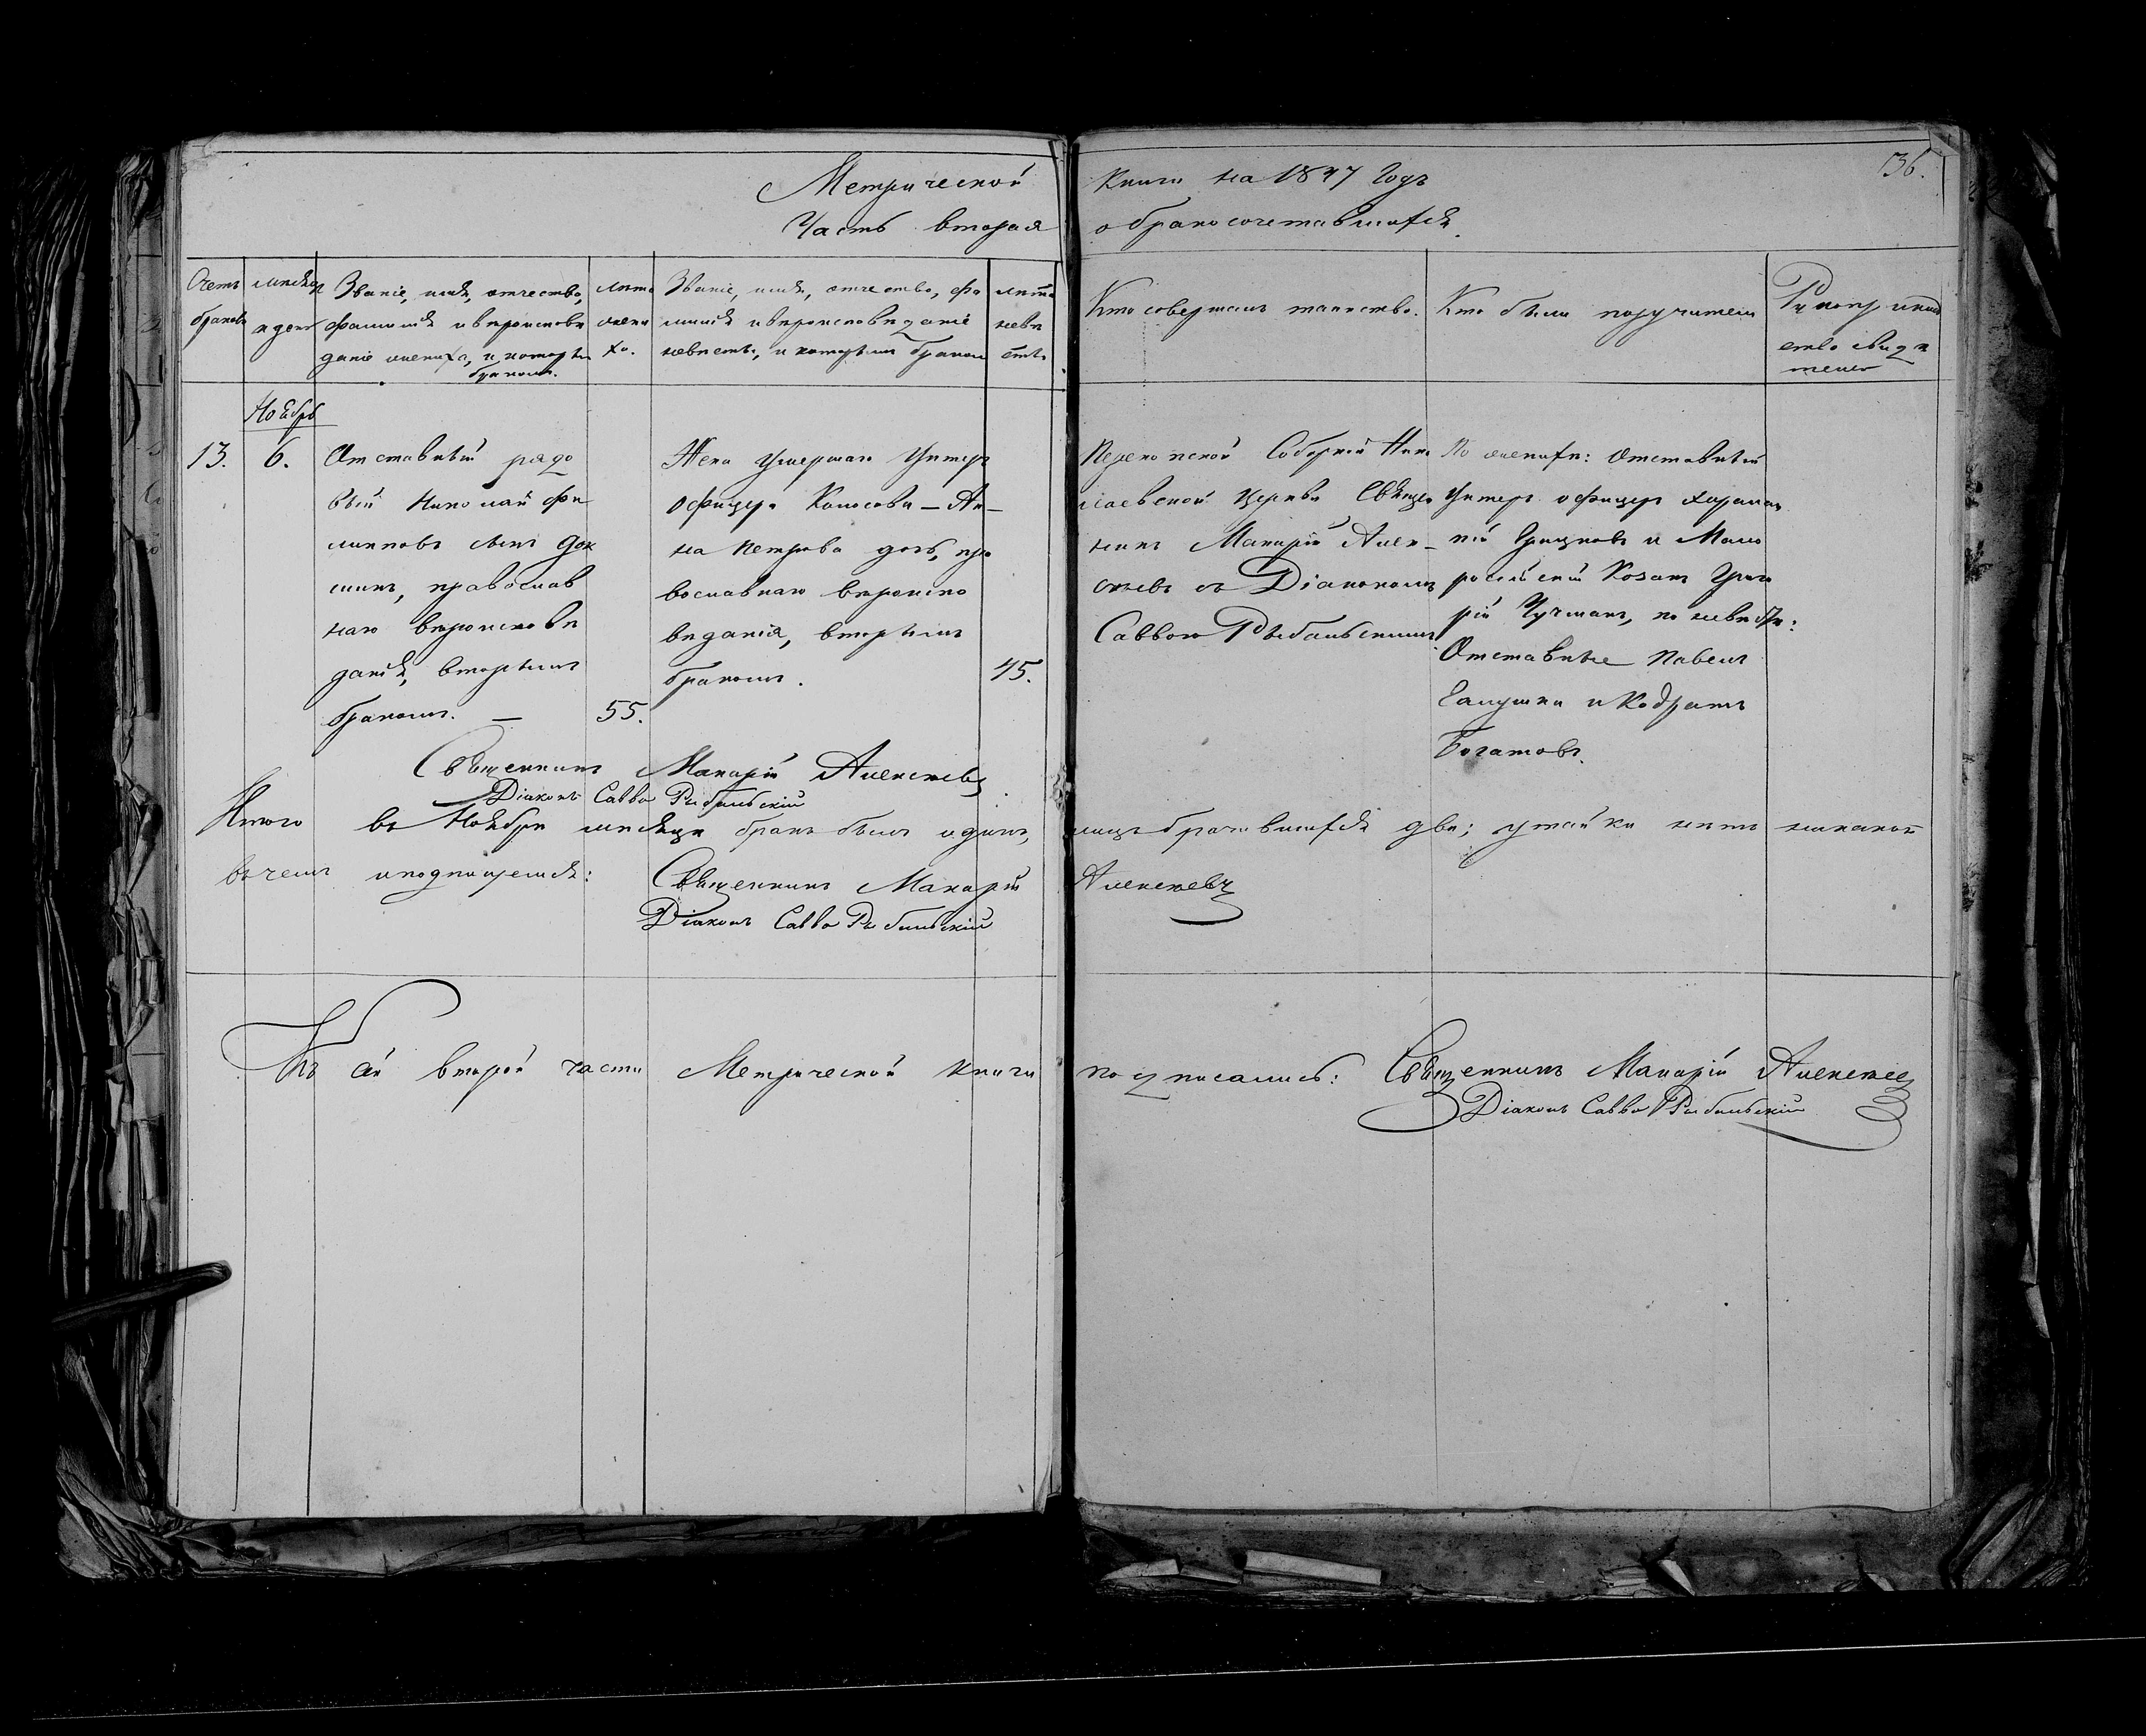 Метрической книги на 1847 Годъ
136.
Часть вторая о бракосочетавшихся.
Счетъ
браковъ
мѣсяцъ
и день
Званіе, имя, отчество,
фамилія и вѣроисповѣ
даніе жениха, и которымъ
бракомъ.
лѣта
жени
ха.
Званіе, имя, отчество, фа
милія и вѣроисповѣданіе
невѣсты, и которымъ бракомъ
лѣта
невѣ
сты
Кто совершалъ таинство.
Кто были поручители
свидѣ
телей
Ноябрь
13.
6.
Отставный рядо
вый Николай Фи
липповъ сынъ Док
шинъ, православ
наго вѣроисповѣ
данія, вторымъ
бракомъ. —
55.
Жена умершаго Унтеръ
офицера Колосова — Ан–
на Петрова дочь, пра
вославнаго вѣроиспо
вѣданія, вторымъ
бракомъ.
45.
Перекопской Соборной Нико
лаевской Церкви Священ
никъ Макарій Алек–
сѣевъ съ Діакономъ
Саввою Рыбальскимъ
По женихѣ: Отставный
Унтеръ офицеръ
и Мало
россійскій Козакъ Григо
рій Чучманъ, по невѣстѣ:
Отставные Павелъ
Галушка и Кодратъ
Богатовъ.
Священникъ Макарій Алексѣевъ
Діаконъ Савва Рыбальскій
Итого въ Ноябрѣ мѣсяцѣ бракъ былъ одинъ, лицъ брачившихся два; утайки нѣтъ никакой
въ чемъ и подпишемся: Священникъ Макарій Алексѣевъ
Діаконъ Савва Рыбальскій
Къ сей второй части Метрической книги подписались: Священникъ Макарій Алексѣевъ
Діаконъ Савва Рыбальскій